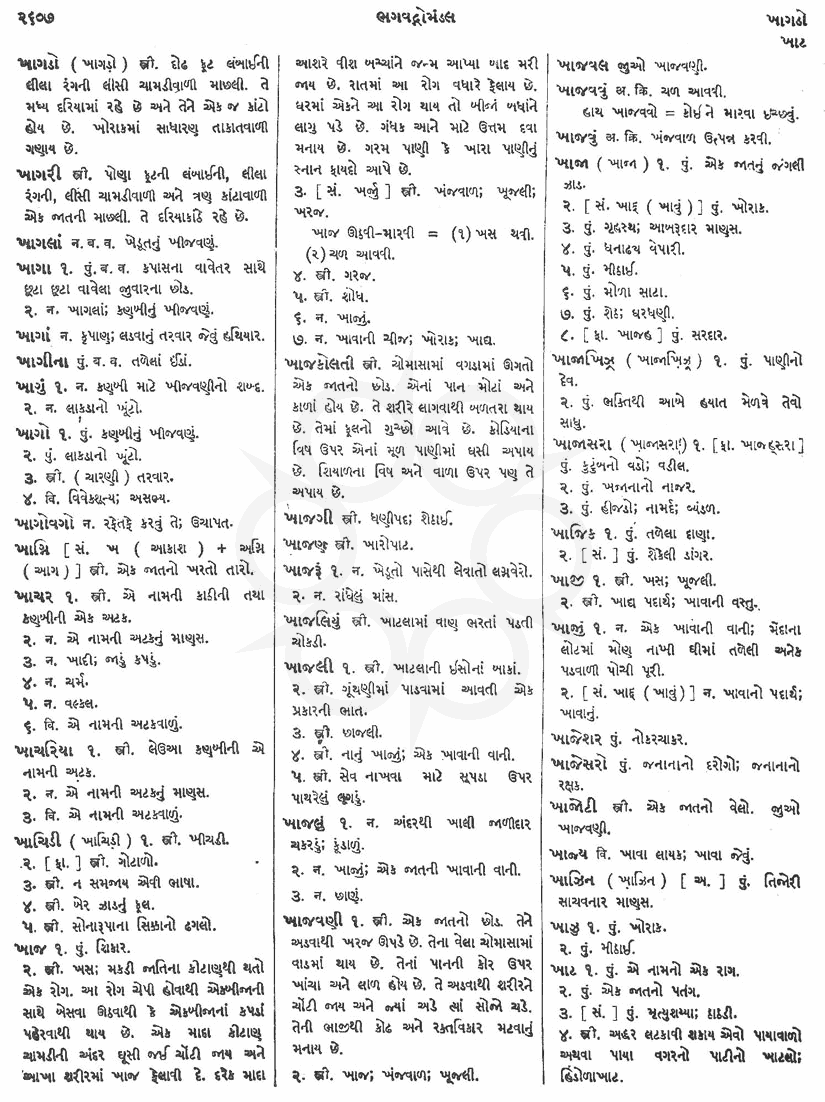 ૨૬૦૭
ભગવદ્ગોમંડલ
ખાગડો
ખાટ
ખાગડો ( ખાગડ઼ો ) સ્ત્રી. દોઢ ફૂટ લંબાઈની
લીલા રંગની લીસી ચામડીવાળી માછલી. તે
મધ્ય દરિયામાં રહે છે અને તેને એક જ કાંટો
હોય છે. ખોરાકમાં સાધારણ તાકાતવાળી
ગણાય છે.
ખાગરી સ્ત્રી. પોણા ફૂટની લંબાઈની, લીલા
રંગની, લીસી ચામડીવાળી અને ત્રણ કાંટાવાળી
એક જાતની માછલી. તે દરિયાકાંઠે રહે છે.
ખાગલાં ન. બ. વ. ખેડૂતનું ખીજવણું.
ખાગા ૧. પું. બ. વ. કપાસના વાવેતર સાથે
છૂટા છૂટા વાવેલા જુવારના છોડ.
૨. ન. ખાગલાં; કણબીનું ખીજવણું.
ખાગાં ન. કૃપાણ; લડવાનું તરવાર જેવું હથિયાર.
ખાગીના પું. બ. વ. તળેલાં ઈંડાં.
ખાગું ૧. ન. કણબી માટે ખીજવણીનો શબ્દ.
૨. ન. લાકડાનો ખૂંટો.
ખાગો ૧. પું. કણબીનું ખીજવણું.
૨. પું. લાકડાનો ખૂંટો.
૩. સ્ત્રી. ( ચારણી ) તરવાર.
૪. વિ. વિવેકશૂન્ય; અસભ્ય.
ખાગોવગો ન. રફેતફે કરવું તે; ઉચાપત.
ખાગ્નિ [ સં. ખ ( આકાશ ) + અગ્નિ
( આગ ) ] સ્ત્રી. એક જાતનો ખરતો તારો.
ખાચર ૧. સ્ત્રી. એ નામની કાઠીની તથા
કણબીની એક અટક.
૨. ન. એ નામની અટકનું માણસ.
૩. ન. ખાદી; જાડું કપડું.
૪. ન. ચર્મ.
૫. ન. વલ્કલ.
૬. વિ. એ નામની અટકવાળું.
ખાચરિયા ૧. સ્ત્રી. લેઉઆ કણબીની એ
નામની અટક.
૨. ન. એ નામની અટકનું માણસ.
૩. વિ. એ નામની અટકવાળું.
ખાચિડી ( ખાચિડ઼ી ) ૧. સ્ત્રી. ખીચડી.
૨. [ ફા. ] સ્ત્રી. ગોટાળો.
૩. સ્ત્રી. ન સમજાય એવી ભાષા.
૪. સ્ત્રી. બેર ઝાડનું ફૂલ.
૫. સ્ત્રી. સોનારૂપાના સિક્કાનો ઢગલો.
ખાજ ૧. પું. શિકાર.
૨. સ્ત્રી. ખસ; મકડી જાતિના કીટાણુથી થતો
એક રોગ. આ રોગ ચેપી હોવાથી એકબીજાની
સાથે બેસવા ઊઠવાથી કે એકબીજાનાં કપડાં
પહેરવાથી થાય છે. એક માદા કીટાણુ
ચામડીની અંદર ઘૂસી જઈ ચોંટી જાય અને
આખા શરીરમાં ખાજ ફેલાવી દે. દરેક માદા
આશરે વીશ બચ્ચાંને જન્મ આપ્યા બાદ મરી
જાય છે. રાતમાં આ રોગ વધારે ફેલાય છે.
ઘરમાં એકને આ રોગ થાય તો બીજાં બધાંને
લાગુ પડે છે. ગંધક આને માટે ઉત્તમ દવા
મનાય છે. ગરમ પાણી કે ખારા પાણીનું
સ્નાન ફાયદો આપે છે.
૩. [ સં. ખર્જુ ] સ્ત્રી. ખંજવાળ; ખૂજલી;
ખરજ.
ખાજ ઊઠવી-મારવી = (૧) ખસ થવી.
(૨) ચળ આવવી.
૪. સ્ત્રી. ગરજ.
૫. સ્ત્રી. શોધ.
૬. ન. ખાજું.
૭. ન. ખાવાની ચીજ; ખોરાક; ખાદ્ય.
ખાજકોલતી સ્ત્રી. ચોમાસામાં વગડામાં ઊગતો
એક જાતનો છોડ. એનાં પાન મોટાં અને
કાળાં હોય છે. તે શરીરે લાગવાથી બળતરા થાય
છે. તેમાં ફૂલનો ગુચ્છો આવે છે. કોડિયાના
વિષ ઉપર એનાં મૂળ પાણીમાં ઘસી અપાય
છે. શિયાળના વિષ અને વાળા ઉપર પણ તે
અપાય છે.
ખાજગી સ્ત્રી. ધણીપદ; શેઠાઈ.
ખાજણ સ્ત્રી. ખારોપાટ.
ખાજરૂં ૧. ન. ખેડૂતો પાસેથી લેવાતો લગ્નવેરો.
૨. ન. રાંધેલું માંસ.
ખાજલિયું સ્ત્રી. ખાટલામાં વાણ ભરતાં પડતી
ચોકડી.
ખાજલી ૧. સ્ત્રી. ખાટલાની ઈસોનાં બાકાં.
૨. સ્ત્રી. ગૂંથણીમાં પાડવામાં આવતી એક
પ્રકારની ભાત.
૩. સ્ત્રી. છાજલી.
૪. સ્ત્રી. નાનું ખાજું; એક ખાવાની વાની.
૫. સ્ત્રી. સેવ નાખવા માટે સૂપડા ઉપર
પાથરેલું લૂગડું.
ખાજલું ૧. ન. અંદરથી ખાલી જાળીદાર
ચકરડું; કૂંડાળું.
૨. ન. ખાજું; એક જાતની ખાવાની વાની.
૩. ન. છાણું.
ખાજવણી ૧. સ્ત્રી. એક જાતનો છોડ. તેને
અડવાથી ખરજ ઊપડે છે. તેના વેલા ચોમાસામાં
વાડમાં થાય છે. તેનાં પાનની કોર ઉપર
ખાંચા અને લાળ હોય છે. તે અડવાથી શરીરને
ચોંટી જાય અને જ્યાં અડે ત્યાં સોજો ચડે.
તેની ભાજીથી કોઢ અને રક્તવિકાર મટવાનું
મનાય છે.
૨. સ્ત્રી. ખાજ; ખંજવાળ; ખૂજલી.
ખાજવલ જુઓ ખાજવણી.
ખાજવવું અ. ક્રિ. ચળ આવવી.
હાથ ખાજવવો = કોઈને મારવા ઇચ્છવું.
ખાજવું અ. ક્રિ. ખંજવાળ ઉત્પન્ન કરવી.
ખાજા ( ખાજા ) ૧. પું. એક જાતનું જંગલી
ઝાડ.
૨. [ સં. ખાદ્ ( ખાવું ) ] પું. ખોરાક.
૩. પું. ગૃહસ્થ; આબરૂદાર માણસ.
૪. પું. ધનાઢ્ય વેપારી.
૫. પું. મીઠાઈ.
૬. પું. મોળા સાટા.
૭. પું. શેઠ; ઘરધણી.
૮. [ ફા. ખાજહ ] પું. સરદાર.
ખાજાખિઝ્ર ( ખાજાખ઼િઝ્ર ) ૧. પું. પાણીનો
દેવ.
૨. પું. ભક્તિથી આબે હયાત મેળવે તેવો
સાધુ.
ખાજાસરા ( ખાજાસરા ) ૧. [ ફા. ખાજહ્સરા ]
પું. કુટુંબનો વડો; વડીલ.
૨. પું. ખજાનાનો નાજર.
૩. પું. હીજડો; નામર્દ; વ્યંડળ.
ખાજિક ૧. પું. તળેલા દાણા.
૨. [ સં. ] પું. શેકેલી ડાંગર.
ખાજી ૧. સ્ત્રી. ખસ; ખૂજલી.
૨. સ્ત્રી. ખાદ્ય પદાર્થ; ખાવાની વસ્તુ.
ખાજું ૧. ન. એક ખાવાની વાની; મેંદાના
લોટમાં મોણ નાખી ઘીમાં તળેલી અનેક
પડવાળી પોચી પૂરી.
૨. [ સં. ખાદ્ ( ખાવું ) ] ન. ખાવાનો પદાર્થ;
ખાવાનું.
ખાજેશર પું. નોકરચાકર.
ખાજેસરો પું. જનાનાનો દરોગો; જનાનાનો
રક્ષક.
ખાજોટી સ્ત્રી. એક જાતનો વેલો. જુઓ
ખાજવણી.
ખાજ્ય વિ. ખાવા લાયક; ખાવા જેવું.
ખાઝિન ( ખ઼ાઝિન ) [ અ. ] પું. તિજોરી
સાચવનાર માણસ.
ખાઝુ ૧. પું. ખોરાક.
૨. પું. મીઠાઈ.
ખાટ ૧. પું. એ નામનો એક રાગ.
૨. પું. એક જાતનો પતંગ.
૩. [ સં. ] પું. મૃત્યુશય્યા; ઠાઠડી.
૪. સ્ત્રી. અદ્ધર લટકાવી શકાય એવો પાયાવાળો
અથવા પાયા વગરનો પાટીનો ખાટલો;
હિંડોળાખાટ.